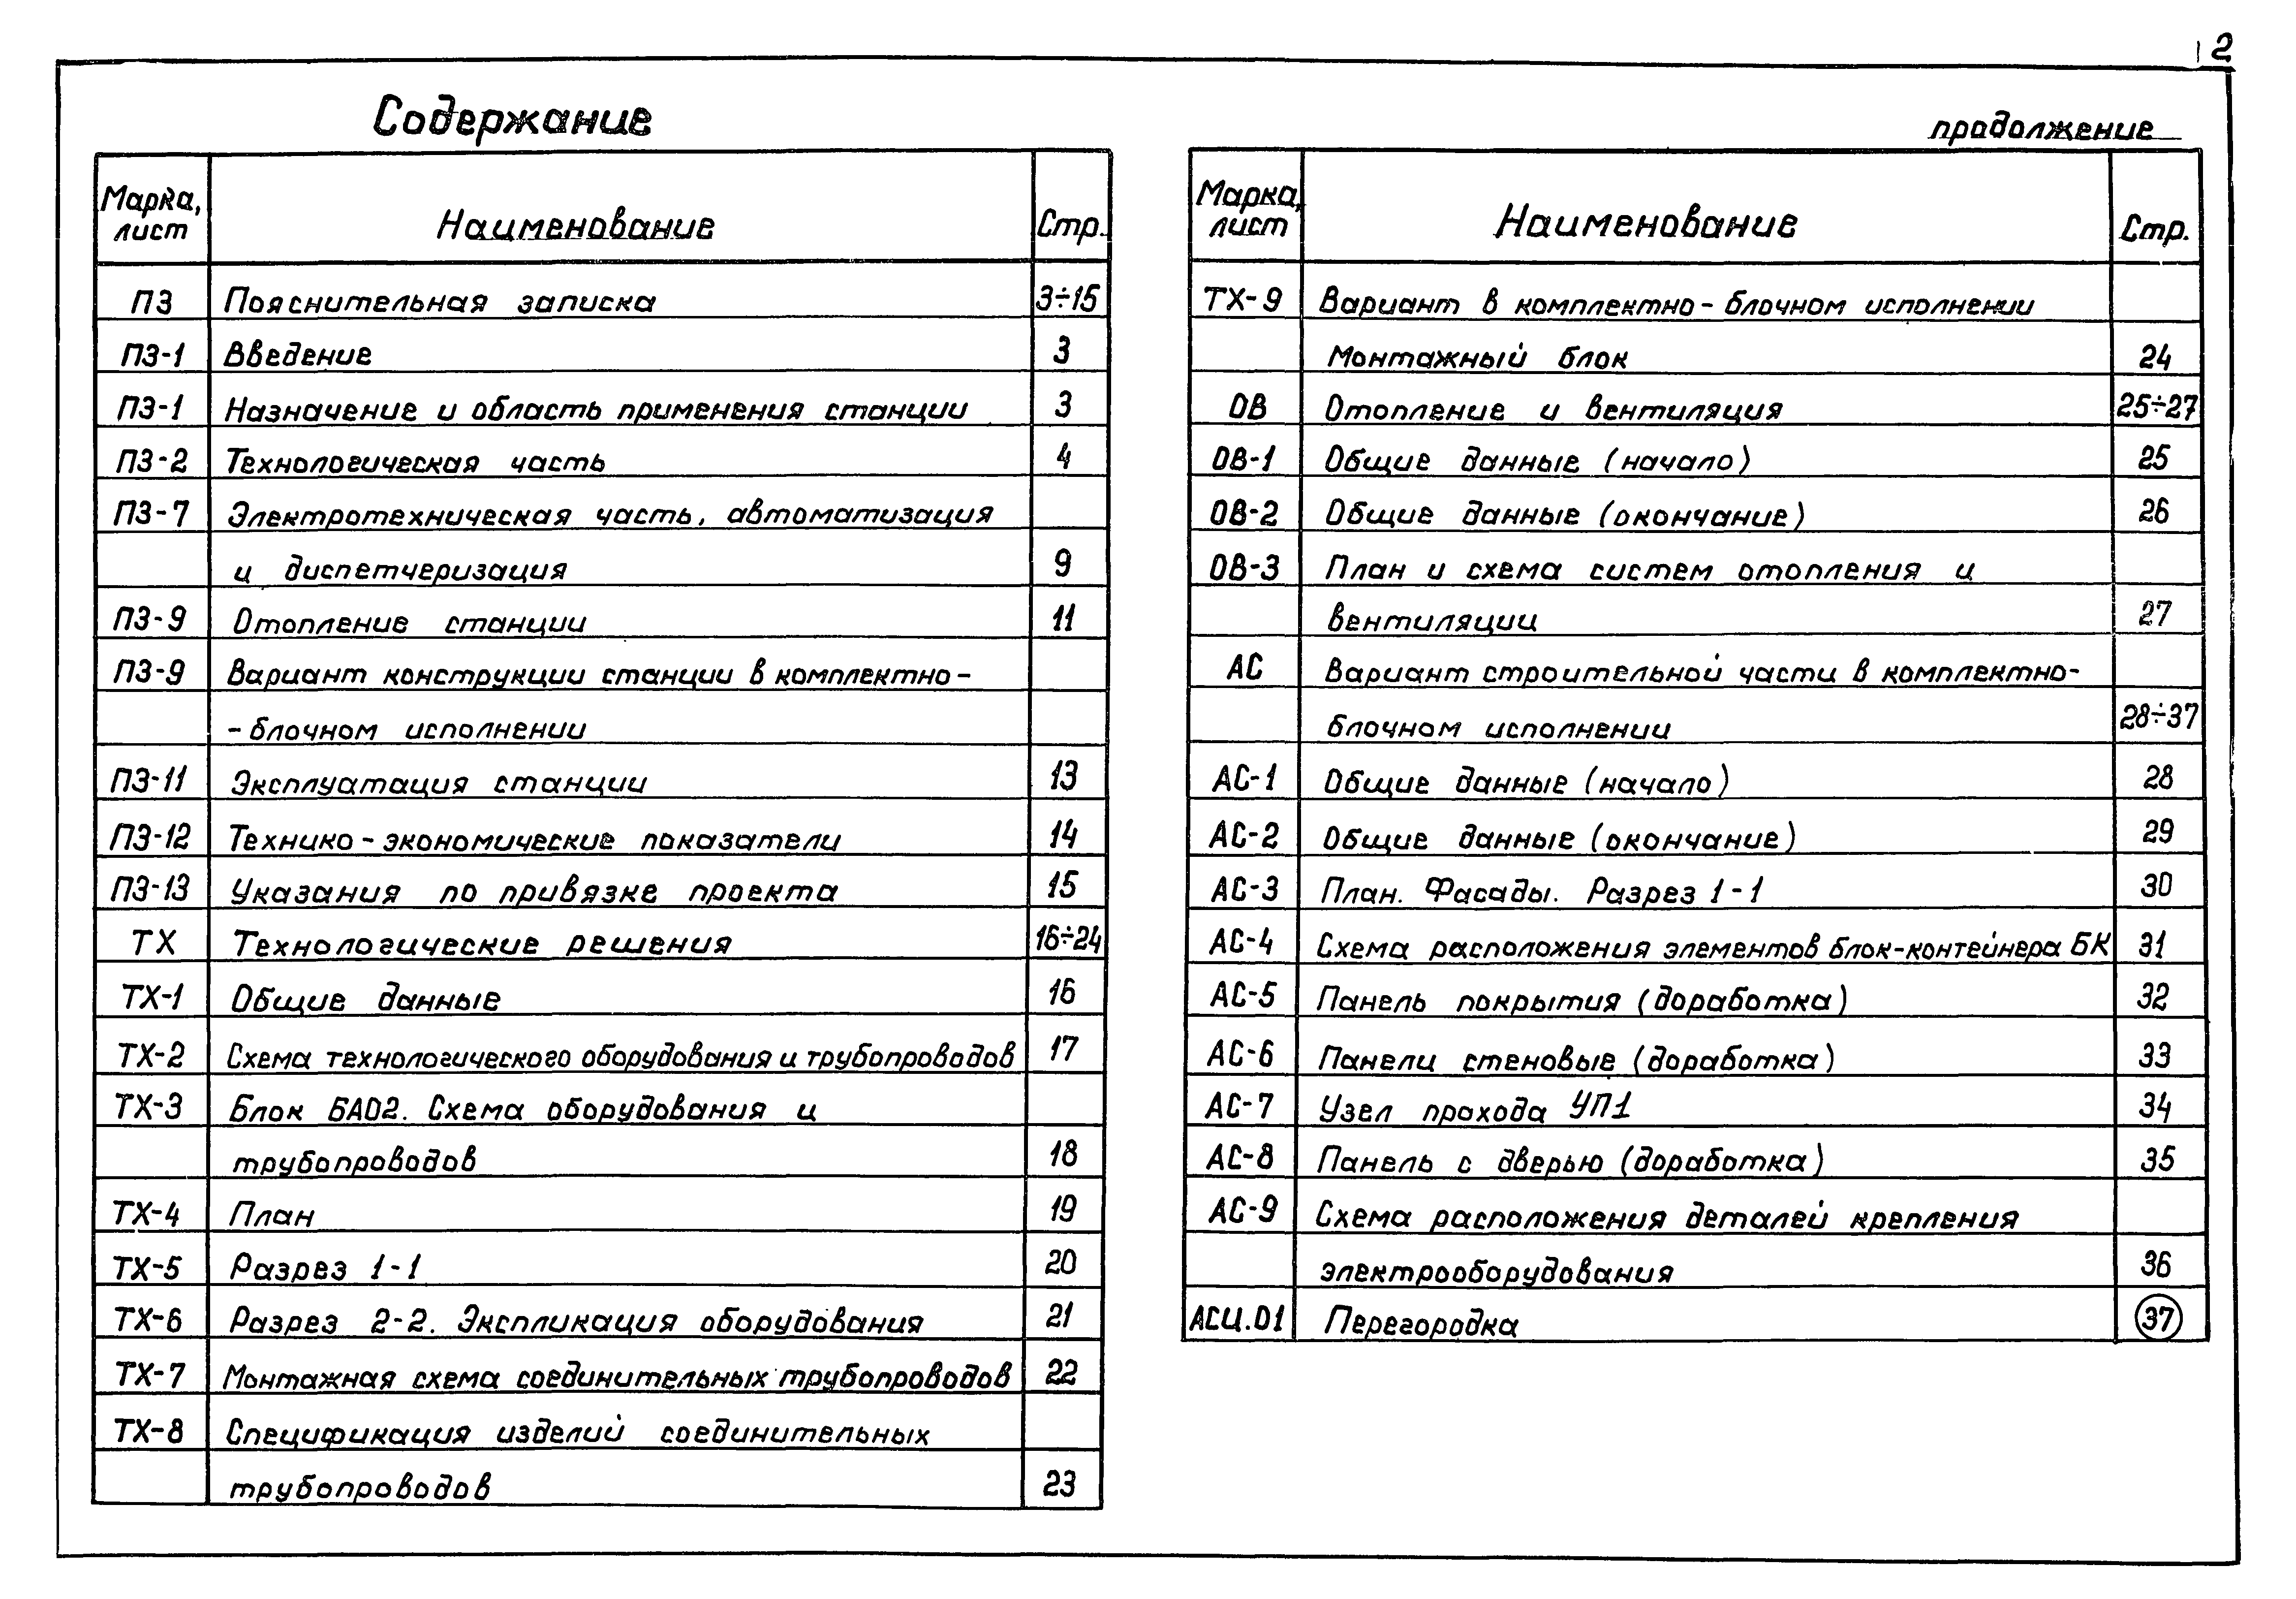 2
Содержание
Марка, лист Наименование Стр.
ПЗ Пояснительная записка 3÷15
ПЗ-1 Введение 3
ПЗ-1 Назначение и область применения станции 3
ПЗ-2 Технологическая часть 4
ПЗ-7 Электротехническая часть, автоматизация
и диспетчеризация 9
ПЗ-9 Отопление станции 11
ПЗ-9 Вариант конструкции станции в комплектно-
-блочном исполнении
ПЗ-11 Эксплуатация станции 13
ПЗ-12 Технико-экономические показатели 14
ПЗ-13 Указания по привязке проекта 15
ТХ Технологические решения 16÷24
ТХ-1 Общие данные 16
ТХ-2 Схема технологического оборудования и трубопроводов 17
ТХ-3 Блок БА02. Схема оборудования и
трубопроводов 18
ТХ-4 План 19
ТХ-5 Разрез 1-1 20
ТХ-6 Разрез 2-2. Экспликация оборудования 21
ТХ-7 Монтажная схема соединительных трубопроводов 22
ТХ-8 Спецификация изделий соединительных
трубопроводов 23
продолжение
Марка, лист Наименование Стр.
ТХ-9 Вариант в комплектно-блочном исполнении
Монтажный блок 24
ОВ Отопление и вентиляция 25÷27
ОВ-1 Общие данные (начало) 25
ОВ-2 Общие данные (окончание) 26
ОВ-3 План и схема систем отопления и
вентиляции 27
АС Вариант строительной части в комплектно-
блочном исполнении 28÷37
АС-1 Общие данные (начало) 28
АС-2 Общие данные (окончание) 29
АС-3 План. Фасады. Разрез 1-1 30
АС-4 Схема расположения элементов блок-контейнера БК 31
АС-5 Панель покрытия (доработка) 32
АС-6 Панели стеновые (доработка) 33
АС-7 Узел прохода УП1 34
АС-8 Панель с дверью (доработка) 35
АС-9 Схема расположения деталей крепления
электрооборудования 36
АСИ.01 Перегородка 37